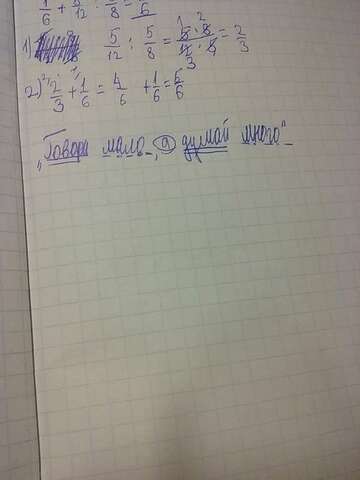 1/6 + 5/12 : 5/8 = 5/6
1) 5/12 : 5/8 = 5·8/12·5 = 2/3
2) 2/3 + 1/6 = 4/6 + 1/6 = 5/6
„Говори мало, а думай много“